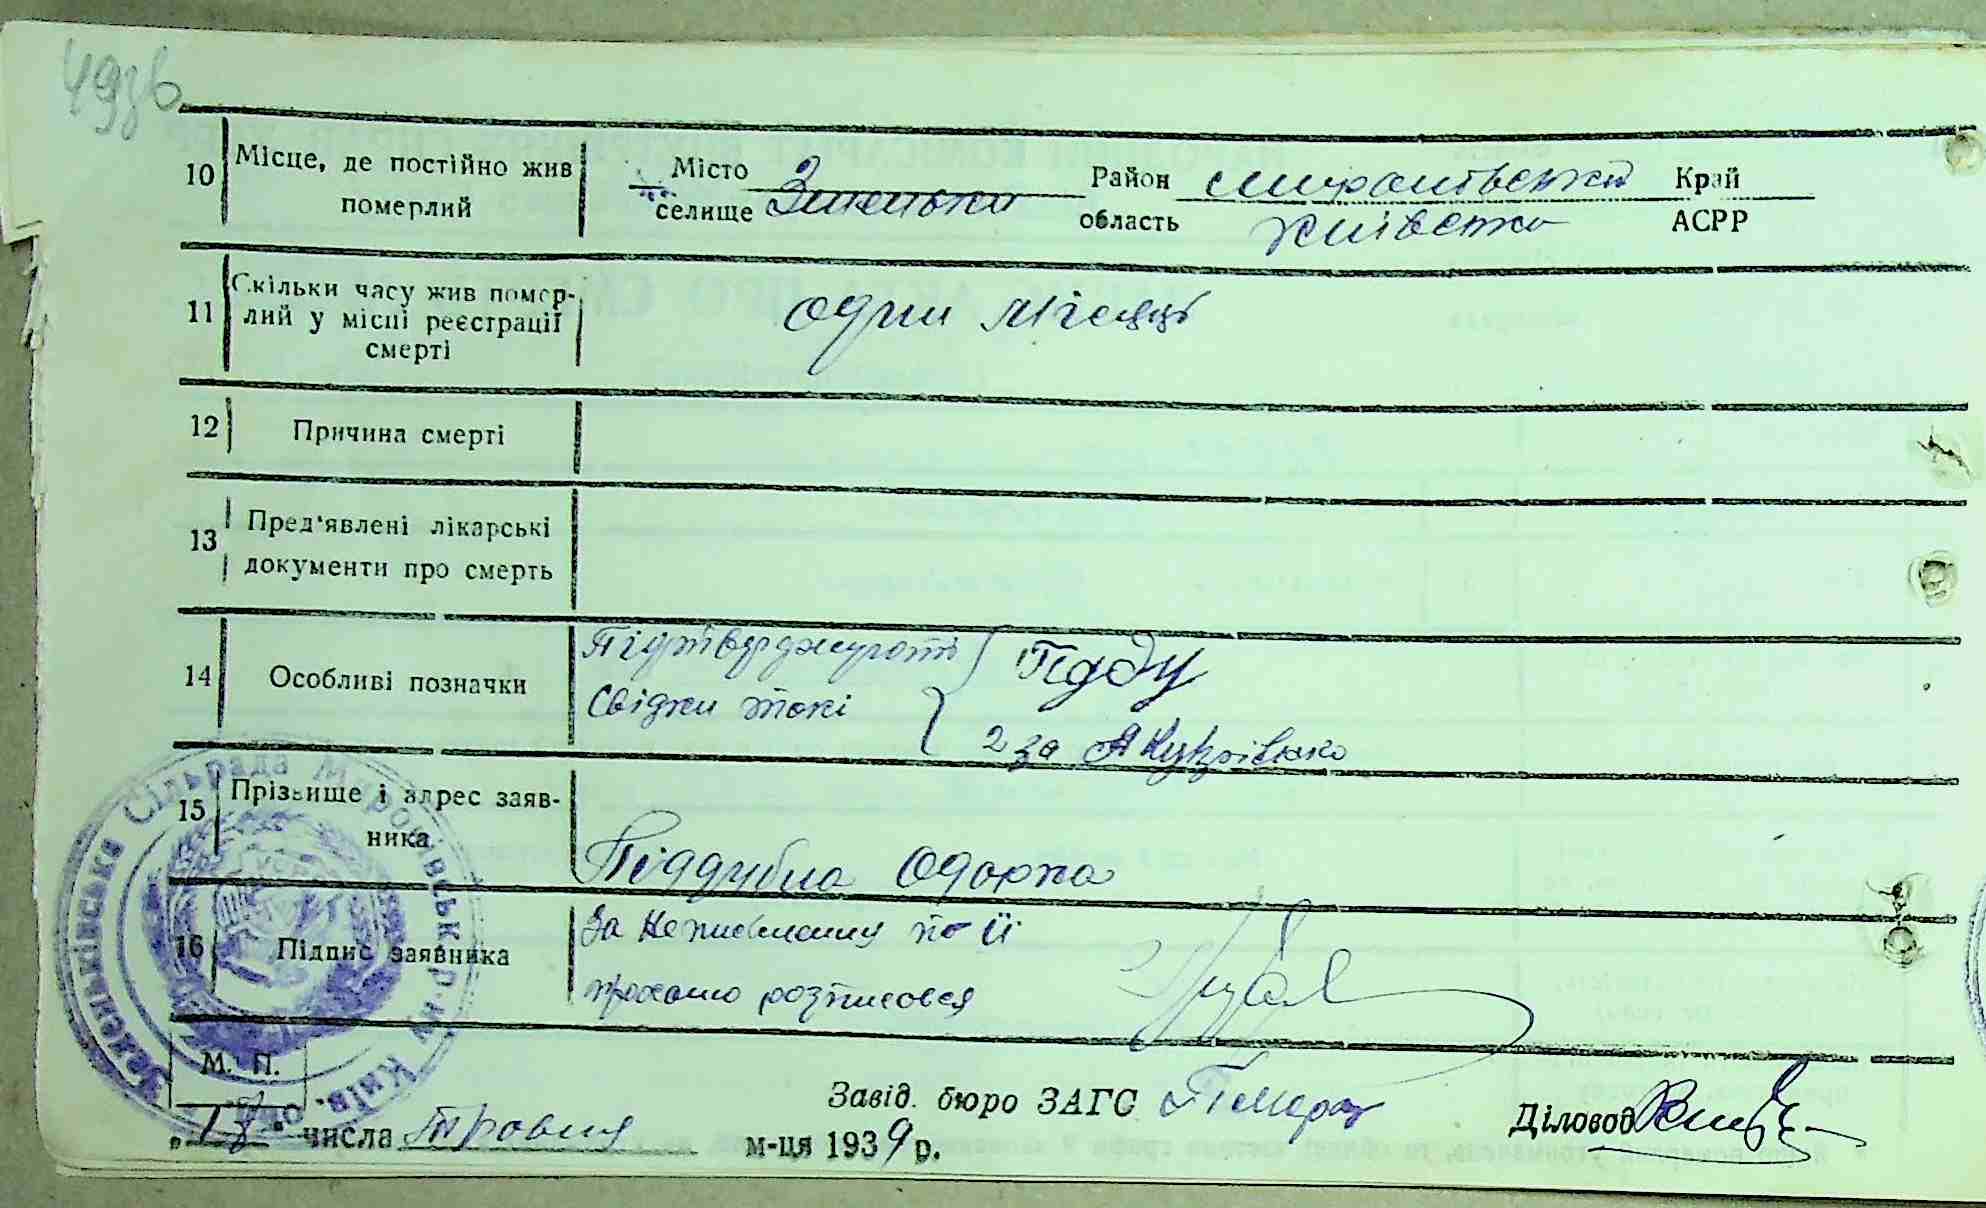 10 Місце, де постійно жив померлий
Місто селище Зиленьки Район Миронівський Край
область Київська АСРР
11 Скільки часу жив помер-
лий у місці реєстрації
смерті
один місяць
12 Причина смерті
13 Пред'явлені лікарські
документи про смерть
14 Особливі позначки
Підтверджують
Свідки такі
2 за
15 Прізвище і адрес заяв-
ника
Піддубна Одарка
16 Підпис заявника
За неписьменну по її
проханню розписався
Зеленьківська Сільрада Миронівськ. р-ну Київ. обл.
М. П.
числа Травня м-ця 1939 р.
Завід. бюро ЗАГС
Діловод